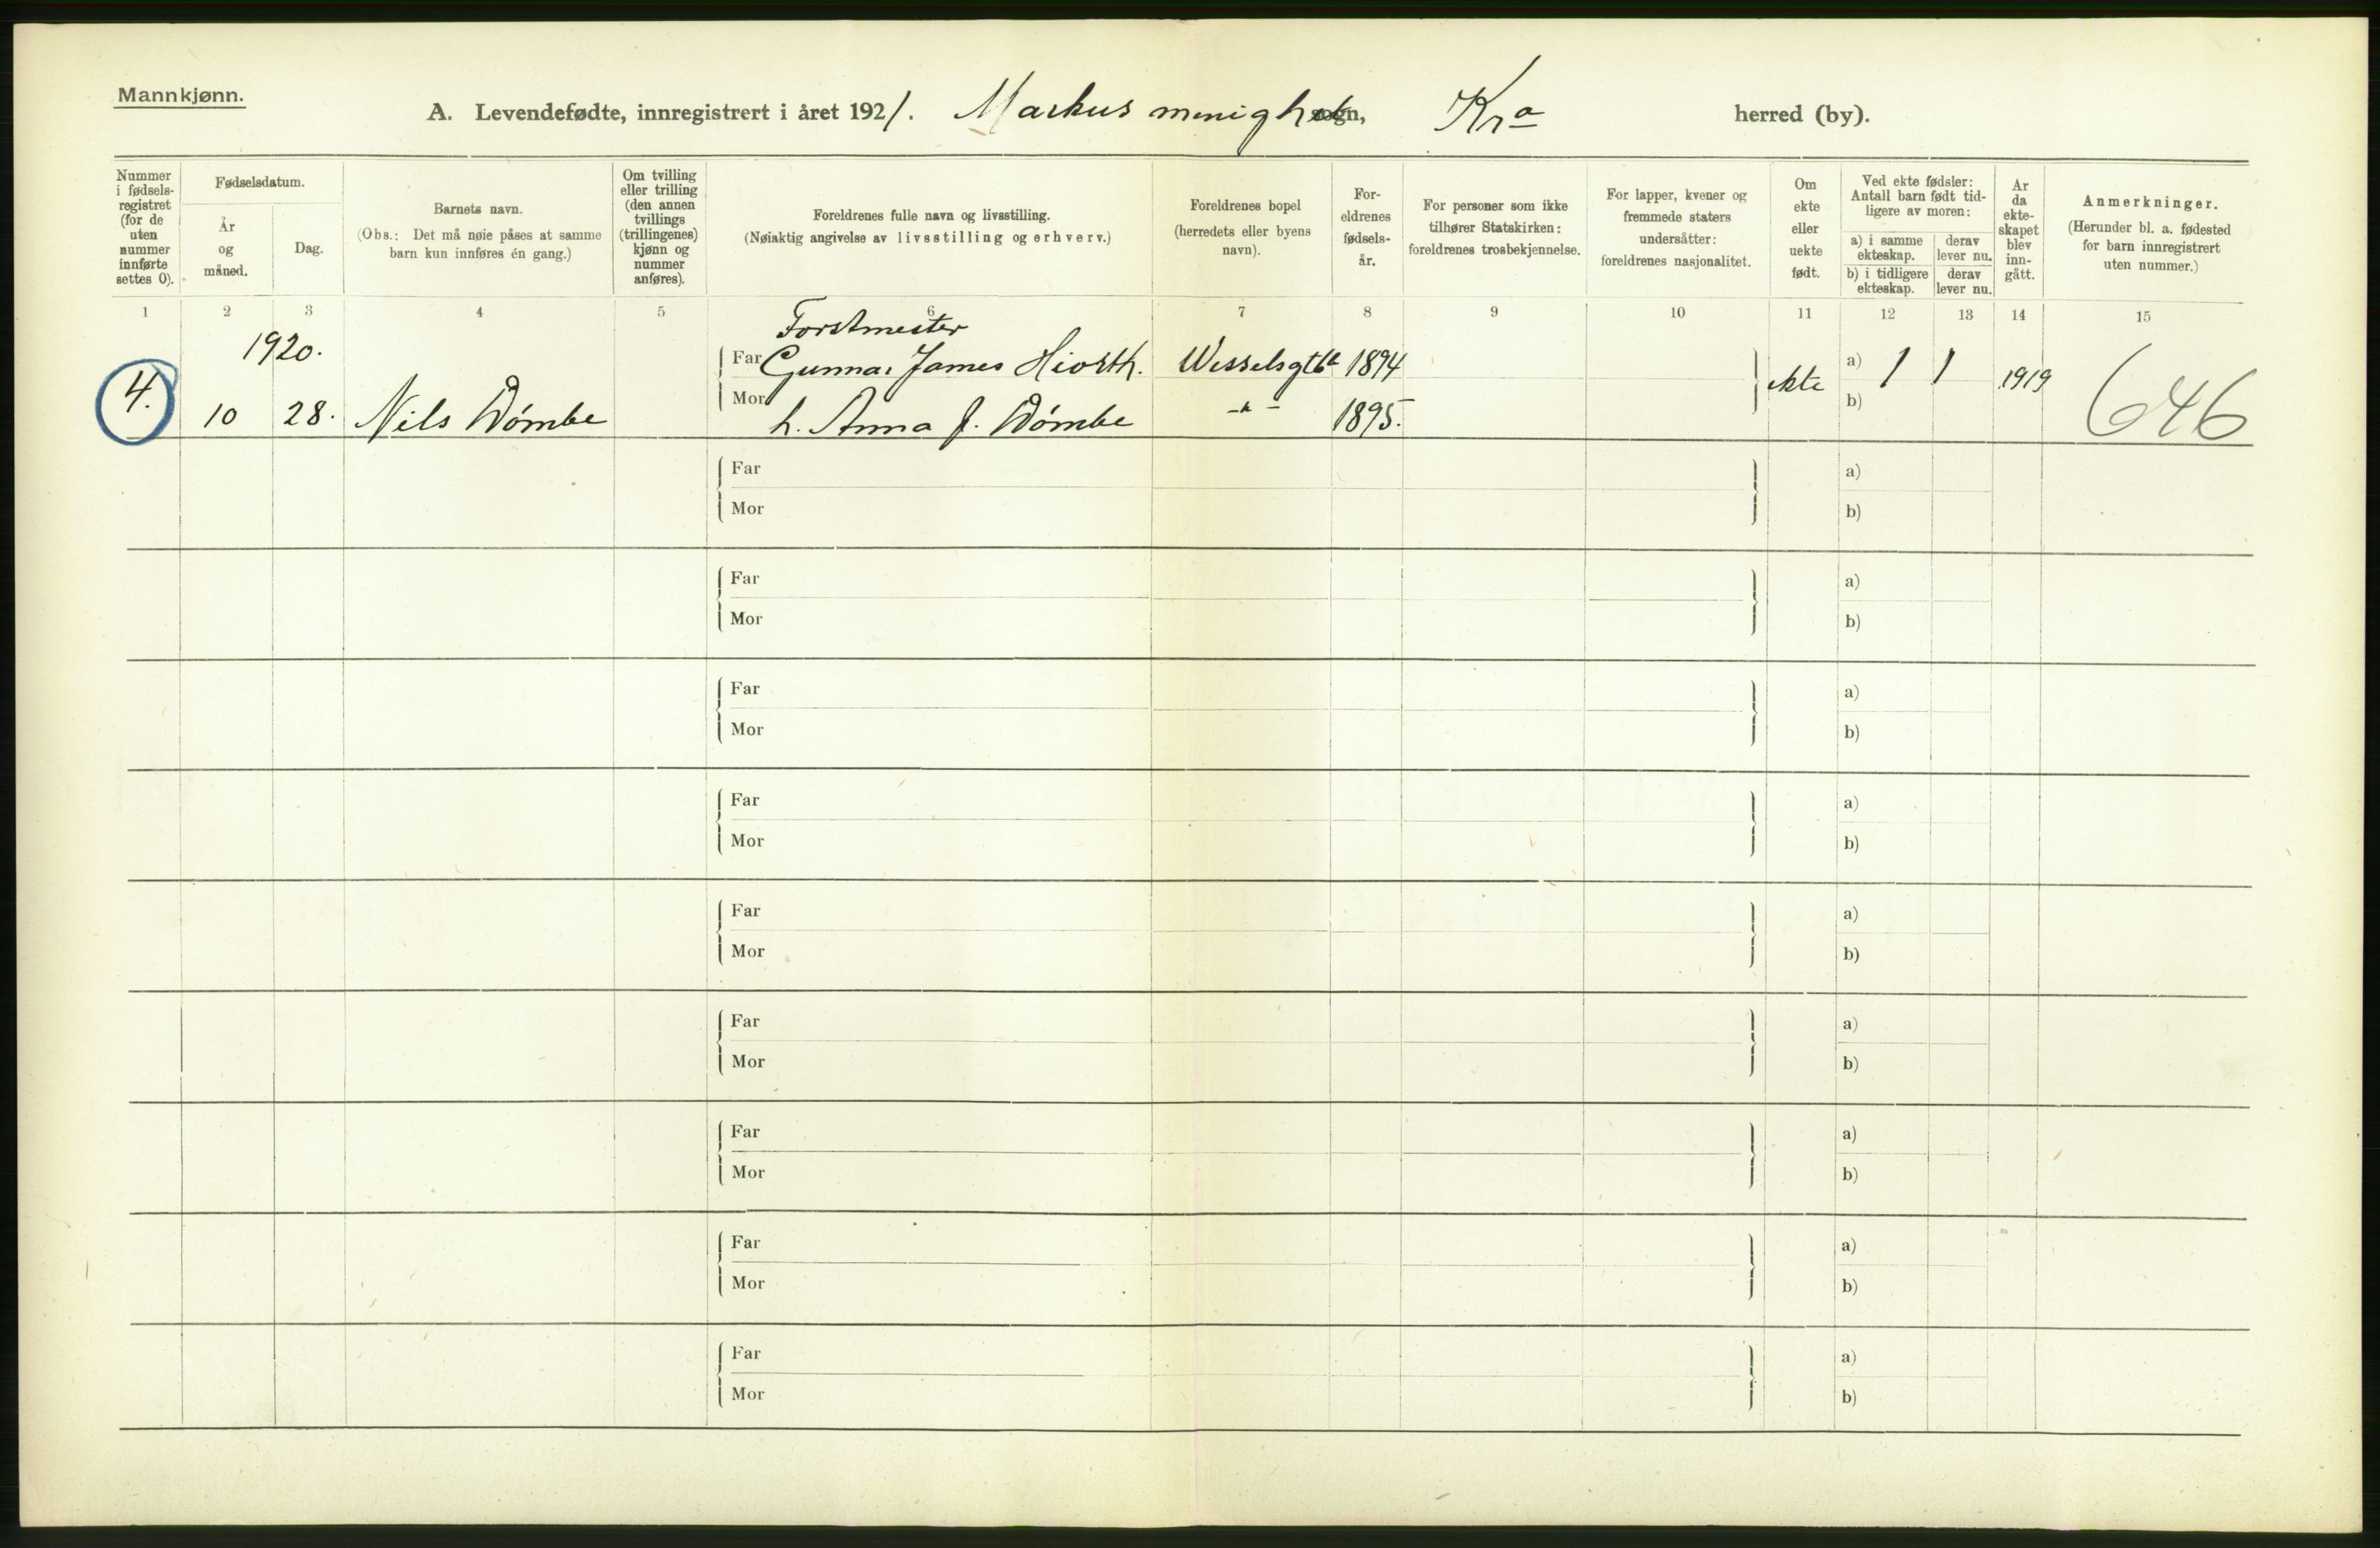 Mannkjønn.
A. Levendefødte, innregistrert i året 1921. Markus menighet sogn, Kra herred (by).
Nummer i fødsels- registret (for de uten nummer innførte settes 0).
Fødselsdatum.
År og måned.
Dag.
Barnets navn.
(Obs.: Det må nøie påses at samme barn kun innføres én gang.)
Om tvilling eller trilling (den annen tvillings (trillingenes) kjønn og nummer anføres).
Foreldrenes fulle navn og livsstilling.
(Nøiaktig angivelse av livsstilling og erhverv.)
Foreldrenes bopel (herredets eller byens navn).
For- eldrenes fødsels- år.
For personer som ikke tilhører Statskirken: foreldrenes trosbekjennelse.
For lapper, kvener og fremmede staters undersåtter: foreldrenes nasjonalitet.
Om ekte eller uekte født.
Ved ekte fødsler: Antall barn født tid- ligere av moren:
a) i samme ekteskap.
derav lever nu.
b) i tidligere ekteskap.
derav lever nu.
År da ekte- skapet blev inn- gått.
Anmerkninger.
(Herunder bl. a. fødested for barn innregistrert uten nummer.)
1 2 3 4 5 6 7 8 9 10 11 12 13 14 15
1920. Forstmester
4. Far Gunnar James Hiorth. Wesselsgt 1894 ekte a) 1 1 1919 646
10 28. Nils Dømbe Mor h. Anna J. Dømbe -"- 1895. b)
Far a)
Mor b)
Far a)
Mor b)
Far a)
Mor b)
Far a)
Mor b)
Far a)
Mor b)
Far a)
Mor b)
Far a)
Mor b)
Far a)
Mor b)
Far a)
Mor b)